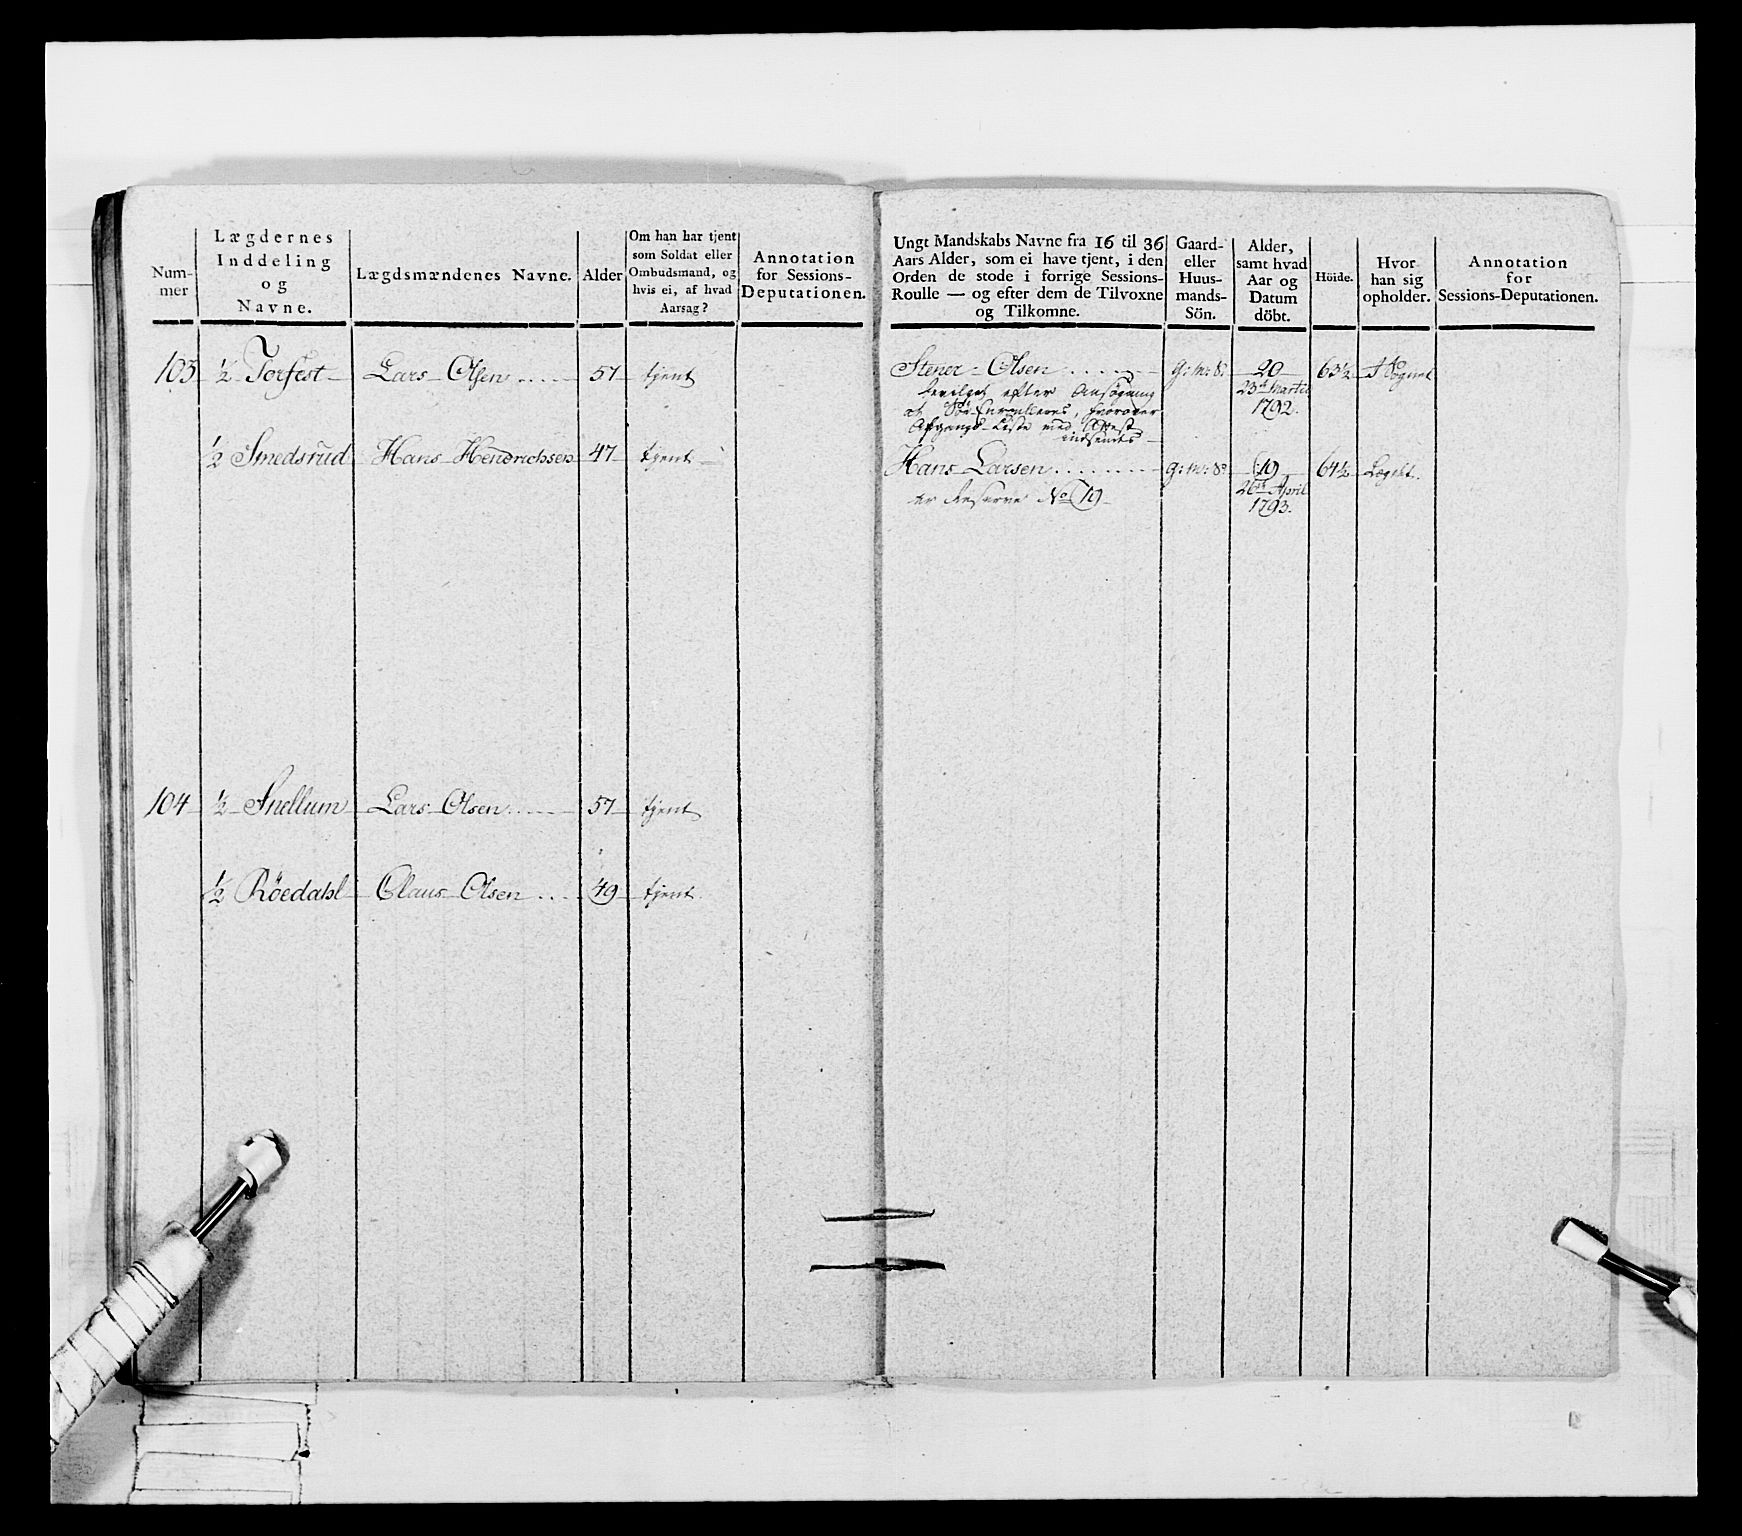 Num-
mer
Lægdernes
Inddeling
og
Navne.
Lægdsmændenes Navne.
Alder
Om han har tjent
som Soldat eller
Ombudsmand, og
hvis ei, af hvad
Aarsag?
Annotation
for Sessions-
Deputationen.
103 ½ Torfest Lars Olsen 57 tjent
½ Smedsrud Hans Hendrichsen 47 tjent
104 ½ Snellum Lars Olsen 57 tjent
½ Röedahl Claus Olsen 49 tjent
Ungt Mandskabs Navne fra 16 til 36
Aars Alder, som ei have tjent, i den
Orden de stode i forrige Sessions-
Roulle — og efter dem de Tilvoxne
og Tilkomne.
Gaard-
eller
Huus-
mands-
Sön.
Alder,
samt hvad
Aar og
Datum
döbt.
Höide.
Hvor
han sig
opholder.
Annotation
for
Sessions-Deputationen.
Stener Olsen G: M: S: 20 63½ Sognet
bevilget efter Ansøgning 23de Martii
at Søe-Enrolleres, hvorover 1792.
Afgangs-Liste med Attest
indsendes
Hans Larsen G: M: S: 19 64½ Lægdet.
er Reserve No 19 26de April
1793.